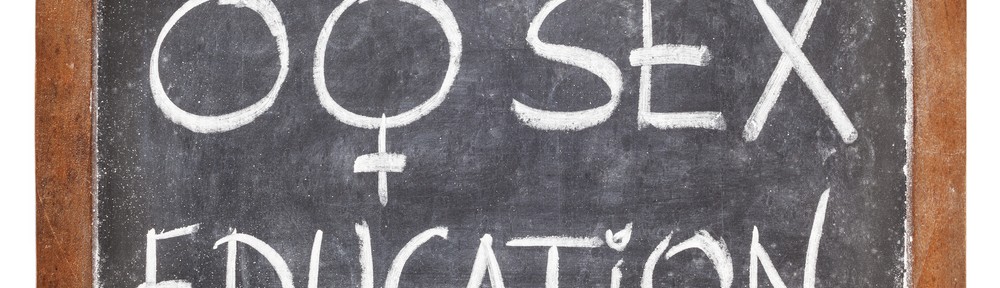 SEX
EDUCATiON